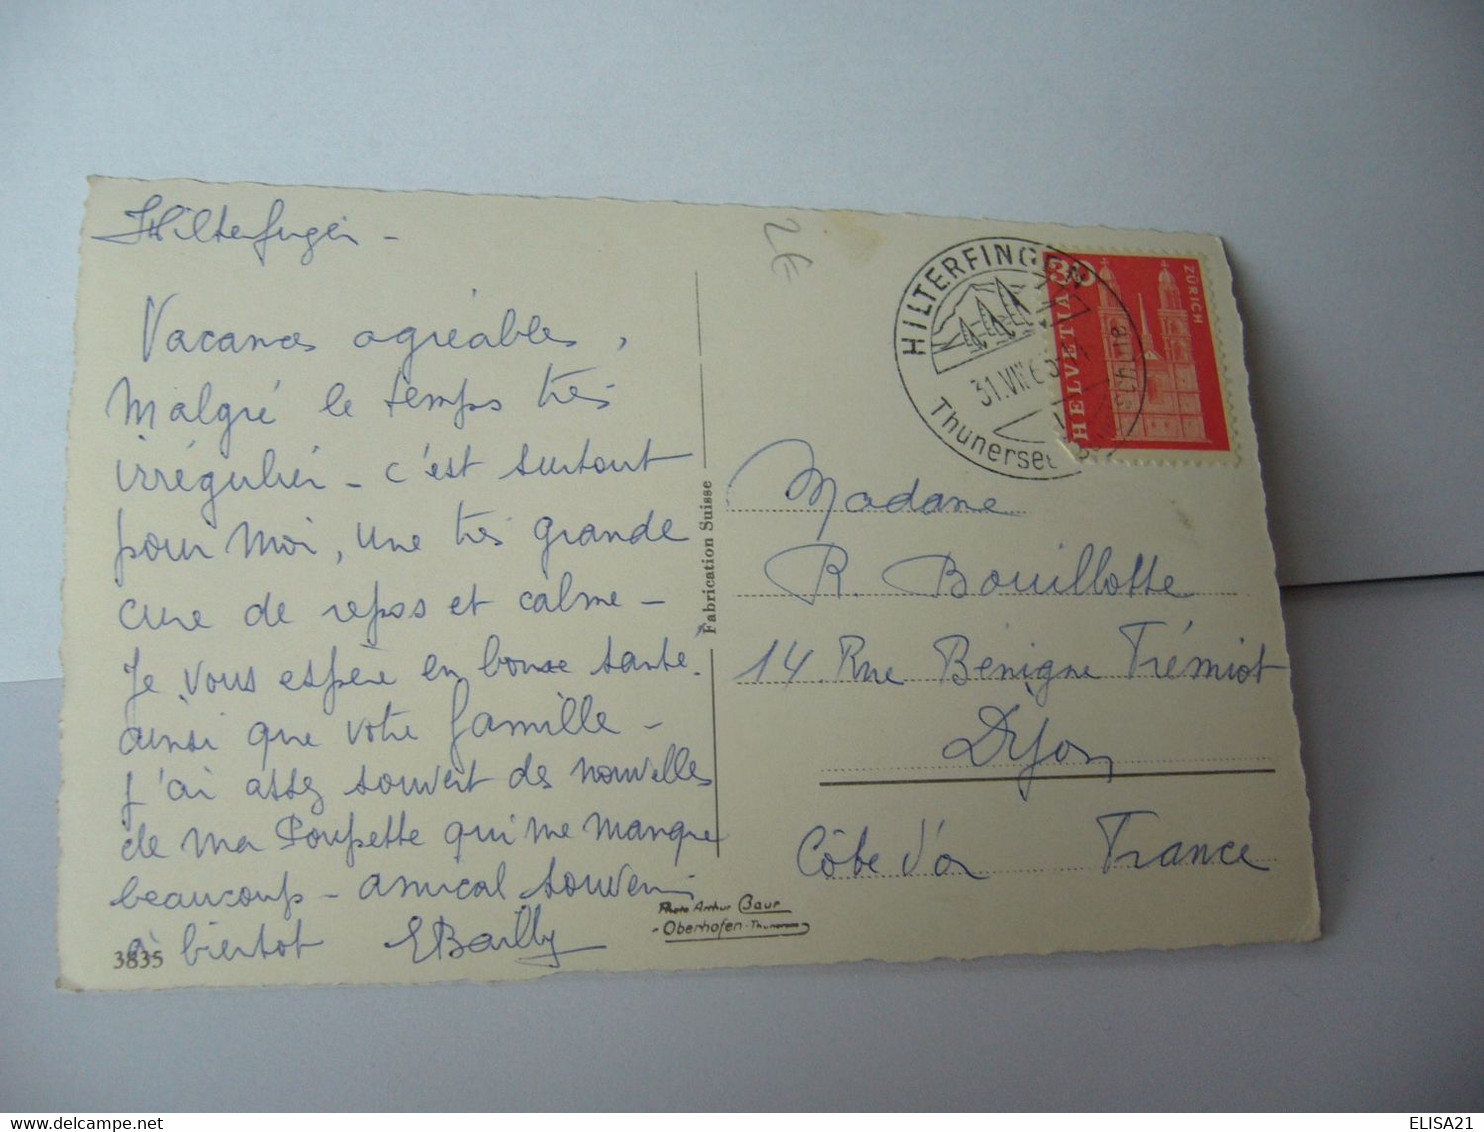 Hilterfingen -
Vacances agréables,
Malgré le temps très
irrégulier - c'est surtout
pour moi, une très grande
cure de repos et calme -
Je vous espère en bonne santé.
ainsi que votre famille -
j'ai assez souvent des nouvelles
de ma Poupette qui me manque
beaucoup - amical souvenir
à bientot EBailly
3835
Fabrication Suisse
Photo Arthur Baur
Oberhofen - Thunersee
2€
HILTERFINGEN
31.VIII.6
Thunersee
HELVETIA 30
ZÜRICH
Madame
R. Bouillotte
14 Rue Bénigne Frémiot
Dijon
Côte d'or France
ELISA21